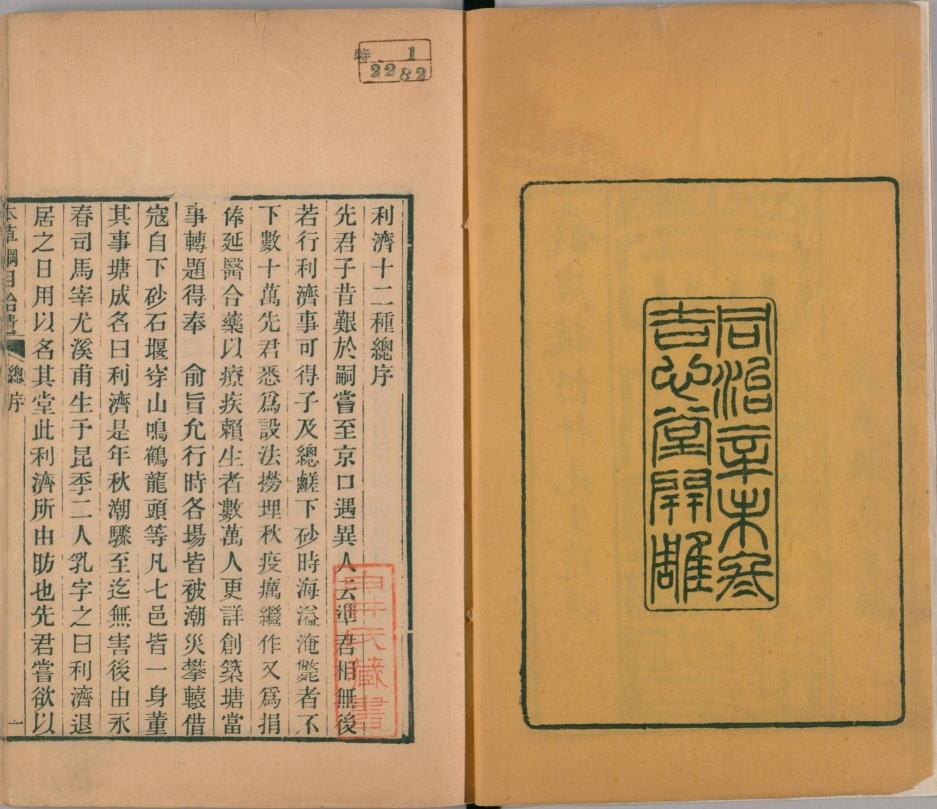 同治辛未冬
吉心堂開雕
特 1
2282
利濟十二種總序
先君子昔艱於嗣嘗至京口遇異人云準君相無後
若行利濟事可得子及總鹺下砂時海溢淹斃者不
下數十萬先君悉爲設法撈埋秋疫癘繼作又爲捐
俸延醫合藥以療疾賴生者數萬人更詳創築塘當
事轉題得奉 俞旨允行時各場皆被潮災攀轅借
寇自下砂石堰穿山鳴鶴龍頭等凡七邑皆一身董
其事塘成名曰利濟是年秋潮驟至迄無害後由永
春司馬宰尤溪甫生于昆季二人乳字之曰利濟退
居之日用以名其堂此利濟所由昉也先君嘗欲以
本草綱目拾遺 總序 一
藏書